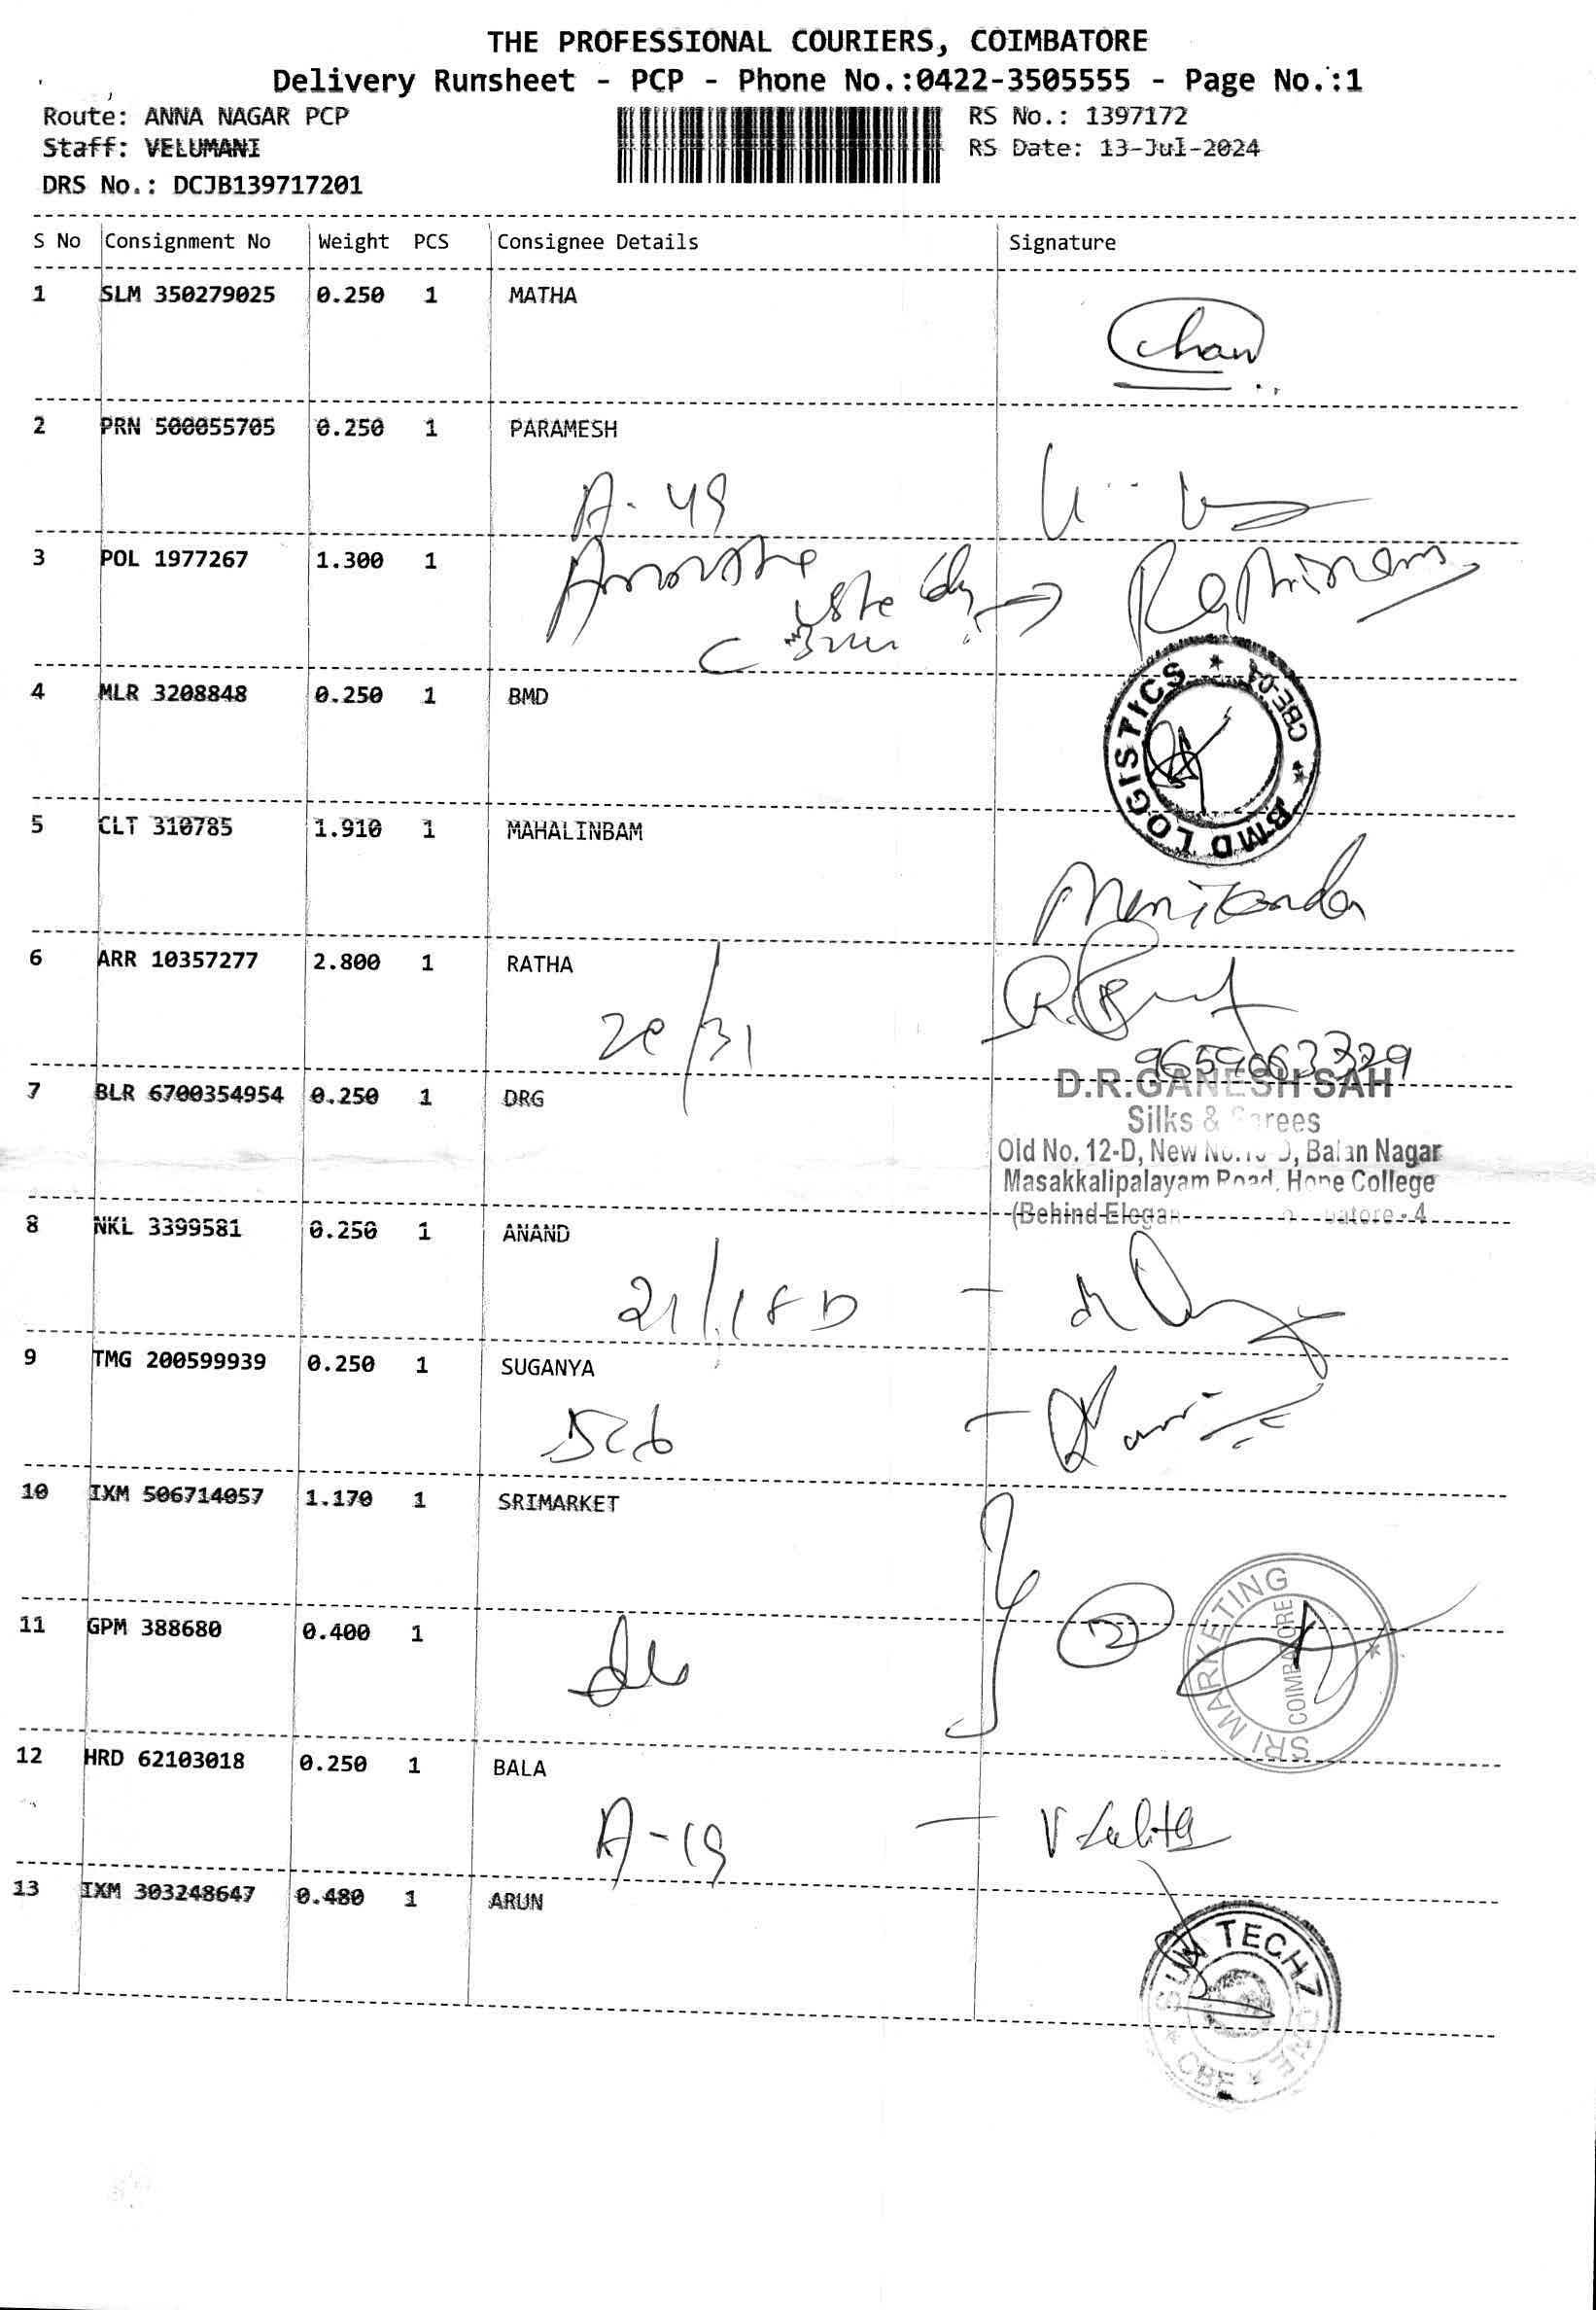 THE PROFESSIONAL COURIERS, COIMBATORE
Delivery Runsheet - PCP - Phone No.:0422-3505555 - Page No.:1
Route: ANNA NAGAR PCP RS No.: 1397172
Staff: VELUMANI RS Date: 13-Jul-2024
DRS No.: DCJB139717201
S No Consignment No Weight PCS Consignee Details Signature
1 SLM 350279025 0.250 1 MATHA
2 PRN 500055705 0.250 1 PARAMESH
A-49
3 POL 1977267 1.300 1
4 MLR 3208848 0.250 1 BMD
BMD LOGISTICS CBE-04
5 CLT 310785 1.910 1 MAHALINBAM
Manikanda
6 ARR 10357277 2.800 1 RATHA
20/31
9659063329
7 BLR 6700354954 0.250 1 DRG
D.R.GANESH SAH
Silks &
Old No. 12-D, New Balan Nagar
Masakkalipalayam Road, Hope College
(Behind
8 NKL 3399581 0.250 1 ANAND
21/18D
9 TMG 200599939 0.250 1 SUGANYA
526
10 IXM 506714057 1.170 1 SRIMARKET
11 GPM 388680 0.400 1
SRI MARKETING COIMBATORE
12 HRD 62103018 0.250 1 BALA
A-19 - V Lalitha
13 IXM 303248647 0.480 1 ARUN
SUN TECH CBE